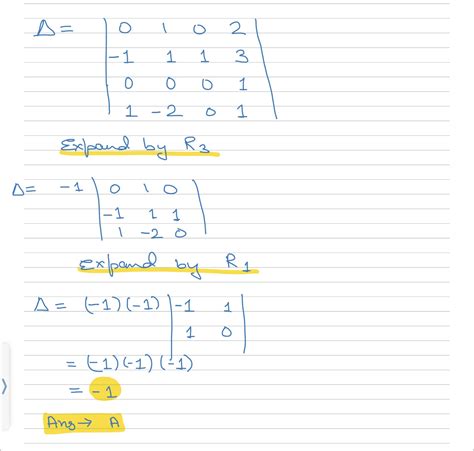 Δ = | 0 1 0 2 |
| -1 1 1 3 |
| 0 0 0 1 |
| 1 -2 0 1 |
Expand by R₃
Δ = -1 | 0 1 0 |
| -1 1 1 |
| 1 -2 0 |
Expand by R₁
Δ = (-1)(-1) | -1 1 |
| 1 0 |
= (-1)(-1)(-1)
= -1
Ans → A